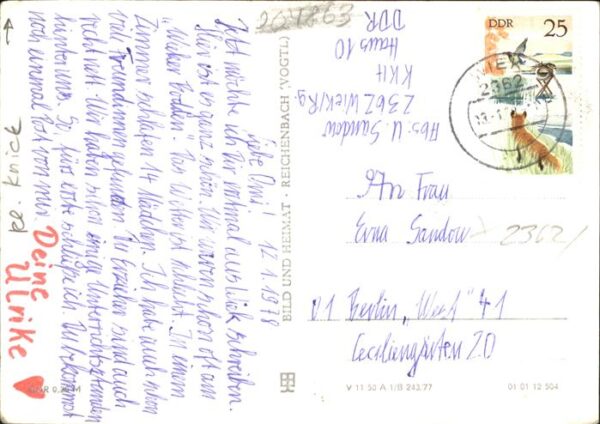 Liebe Omi! 12.1.1978
Jetzt möchte ich Dir erstmal aus Wiek schreiben.
Hier ist es ganz schön. Wir waren schon oft am
"Wieker Bodden". Das Wetter ist schlecht. In einem
Zimmer schlafen 14 Mädchen. Ich habe auch schon
viel Freundinnen gefunden. Die Erzieher sind auch
recht nett. Wir haben schon einige Unterrichtsstunden
hinter uns. So, fürs erste schließe ich. Du bekommst
noch einmal Post von mir.
Deine
Ulrike
kl. Knick
204263
Abs. U. Sandow
2362 Wiek/Rg.
KKH
Haus 10
DDR
BILD UND HEIMAT · REICHENBACH (VOGTL)
DDR 25
WIEK
2362
An Frau
Erna Sandow
2362/
V 1 Berlin "West" 41
Ceciliengärten 20
V 11 50 A 1/B 243/77
01 01 12 504